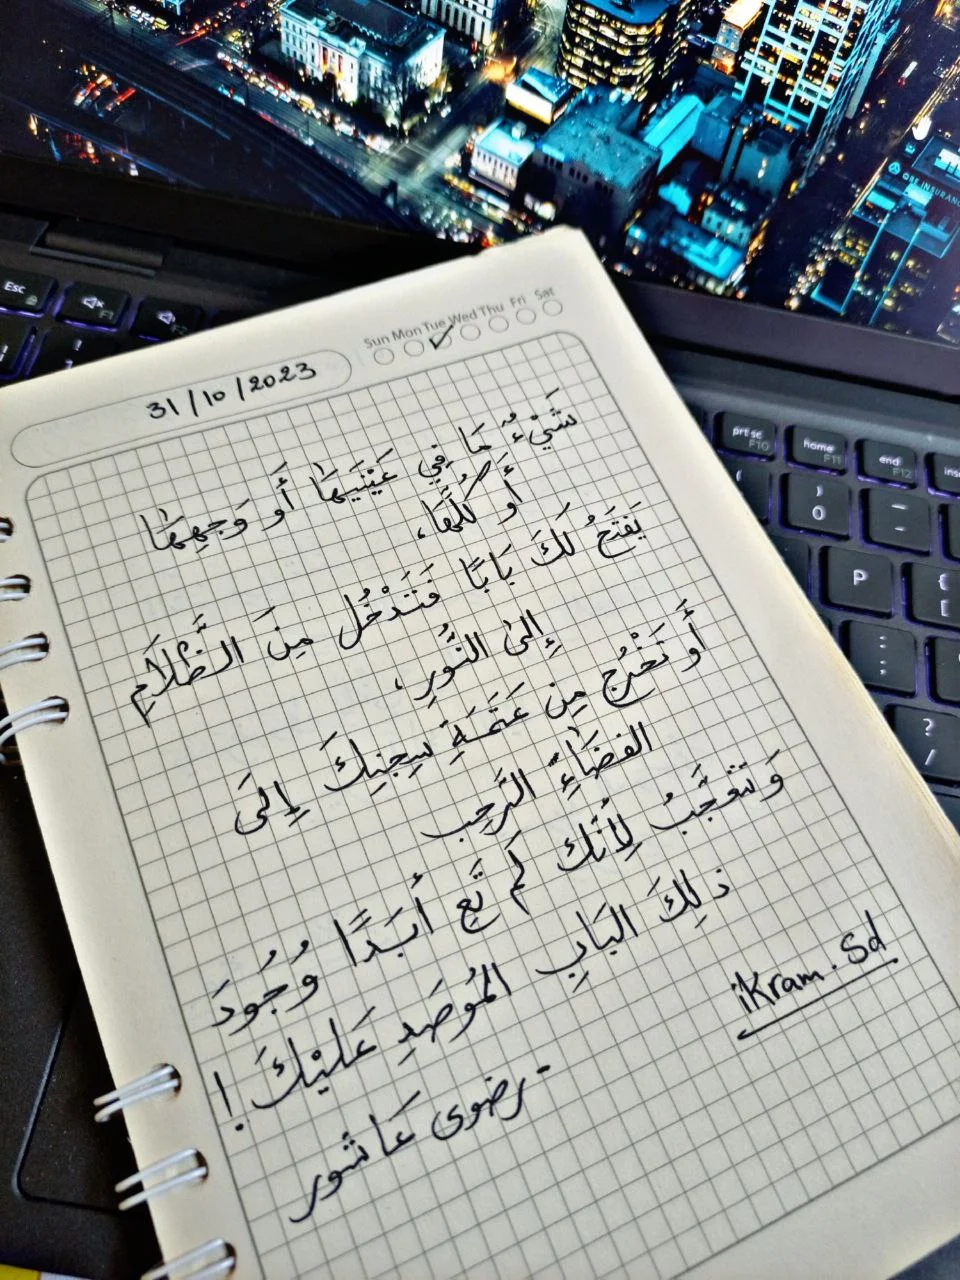 QBE INSURANCE
Esc
F1
prt sc
F10
home
F11
end
F12
ins
)
0
P
{
[
:
;
?
/
Sun Mon Tue Wed Thu Fri Sat
31/10/2023
شَيْءٌ مَا فِي عَيْنَيهَا أَو وَجهِهَا
أَو كُلّهَا،
يَفتَحُ لَكَ بَابًا فَتَدْخُل مِنَ الظَّلَامِ
إِلىٰ النُّورِ،
أَو تَخْرُج مِن عَتمَةِ سِجنِكَ إِلَى
الفضَاءِ الرَحِب
وَتتعَجَّبُ لِأَنّك لَم تَعِ أَبَدًا وُجُودَ
ذلِكَ البَابِ المُوصَدِ عَليْكَ !
- رضوى عَاشور
iKram.Sd